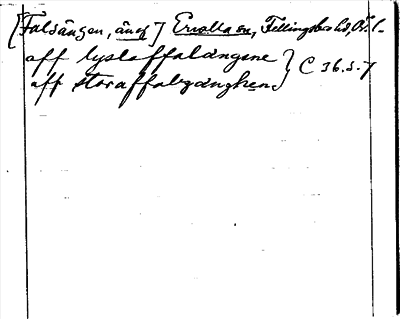 [Falsängen, äng] Ervalla sn, Fellingsbro hd, Ör. l.
aff lyslaffalängine } C 36. s. 7
aff storaffalxänghen